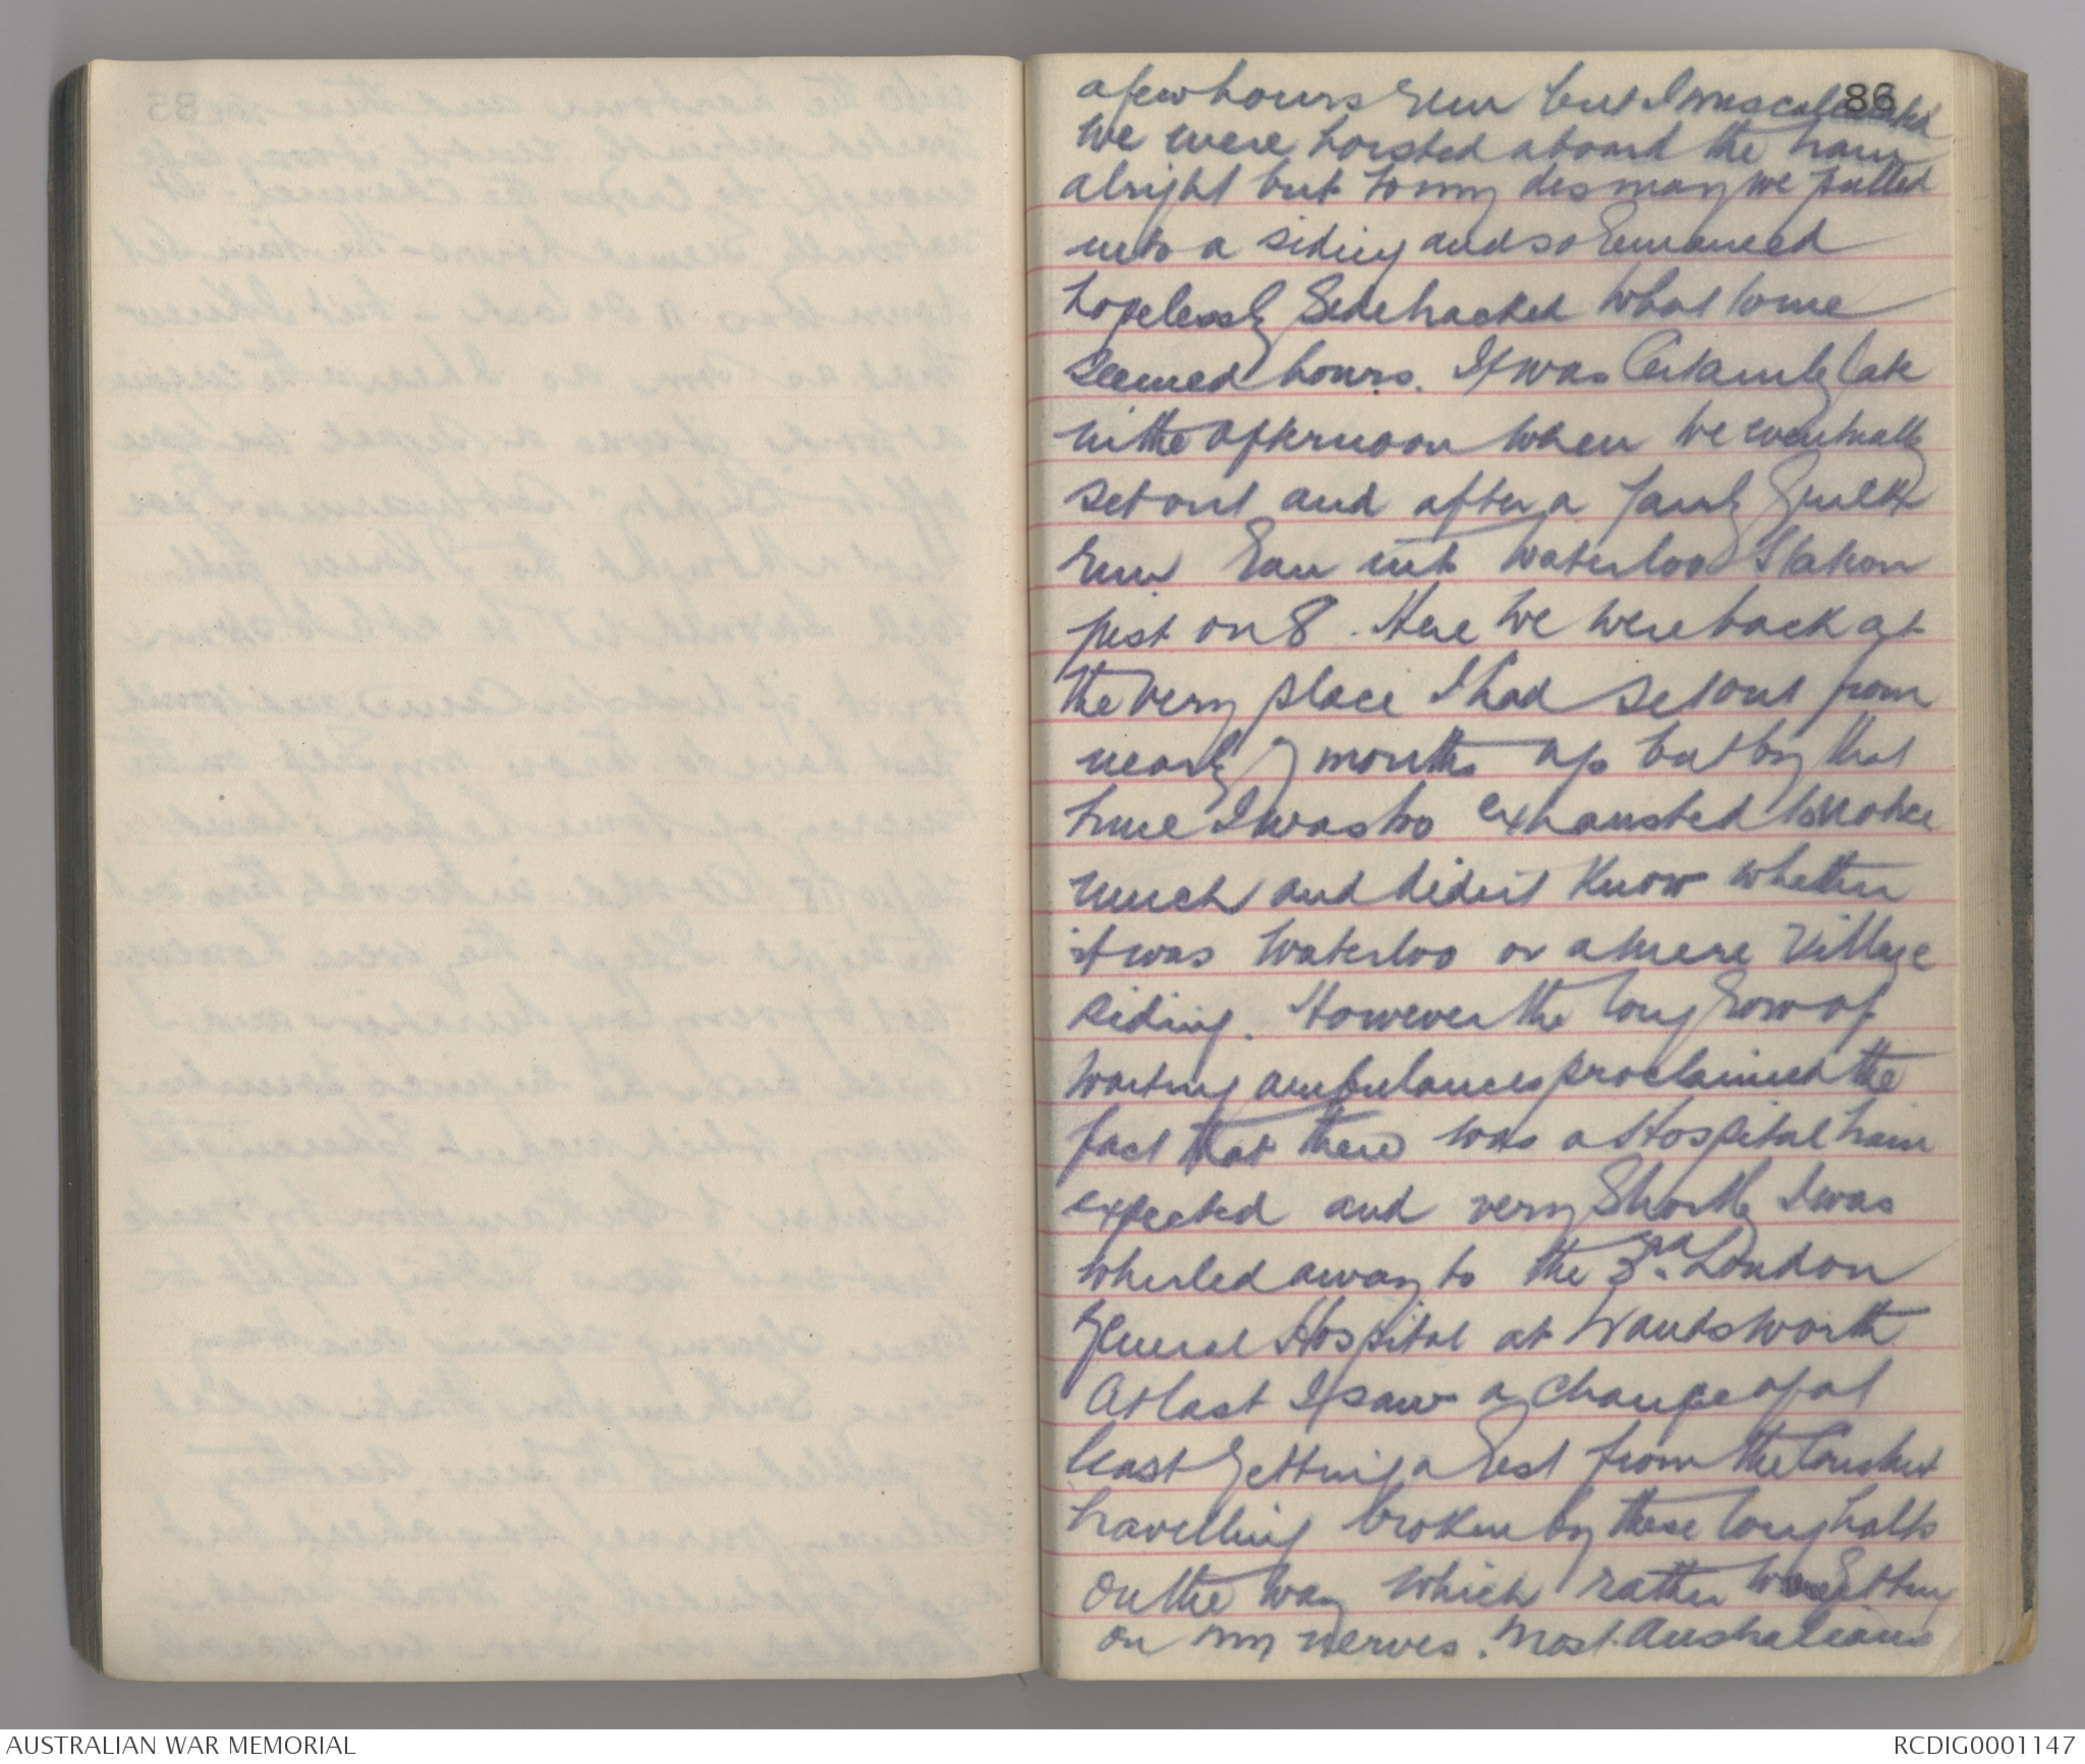 86
a few hours run but I miscalculated
We were hoisted aboard the train
alright but to my dismay we pulled
into a siding and so remained
hopelessly sidetracked what to me
seemed hours. It was certainly late
in the afternoon when we eventually
set out and after a fairly quick
run ran into Waterloo Station
just on 8. Here we were back at
the very place I had set out from
nearly 7 months ago but by that
time I was too exhausted to notice
much and didn't know whether
it was Waterloo or a mere village
siding. However the long row of
waiting ambulances proclaimed the
fact that there was a Hospital train
expected and very shortly I was
whirled away to the 3rd London
General Hospital at Wandsworth
At last I saw a chance of at
least getting a rest from the constant
travelling broken by these long halts
on the way which rather was getting
on my nerves. Most Australians
AUSTRALIAN WAR MEMORIAL
RCDIG0001147